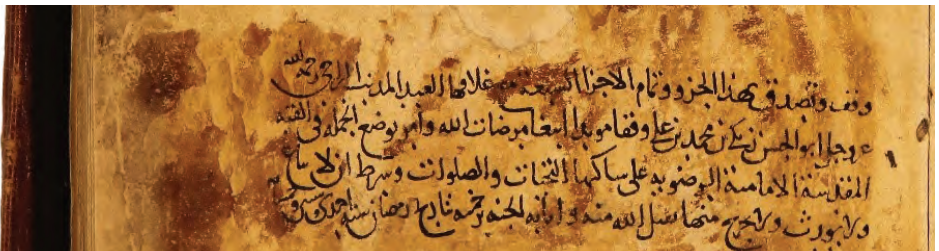 وقف وتصدق بهذا الجزو وتمام الاجزا السبعة مع غلافها العبد المذنب الراجى رحمة الله
عز وجل ابو الحسن بن محمد بن علي وقفا موبدا ابتغا مرضات الله وامر بوضع الجملة فى القبة
المقدسة الامامية الرضوية على ساكنها التحيات والصلوات وشرط ان لا يباع
ولا يورث ولا يخرج منها تقبل الله منه واثابه الجنة برحمته تاريخ رمضان سنة احدى